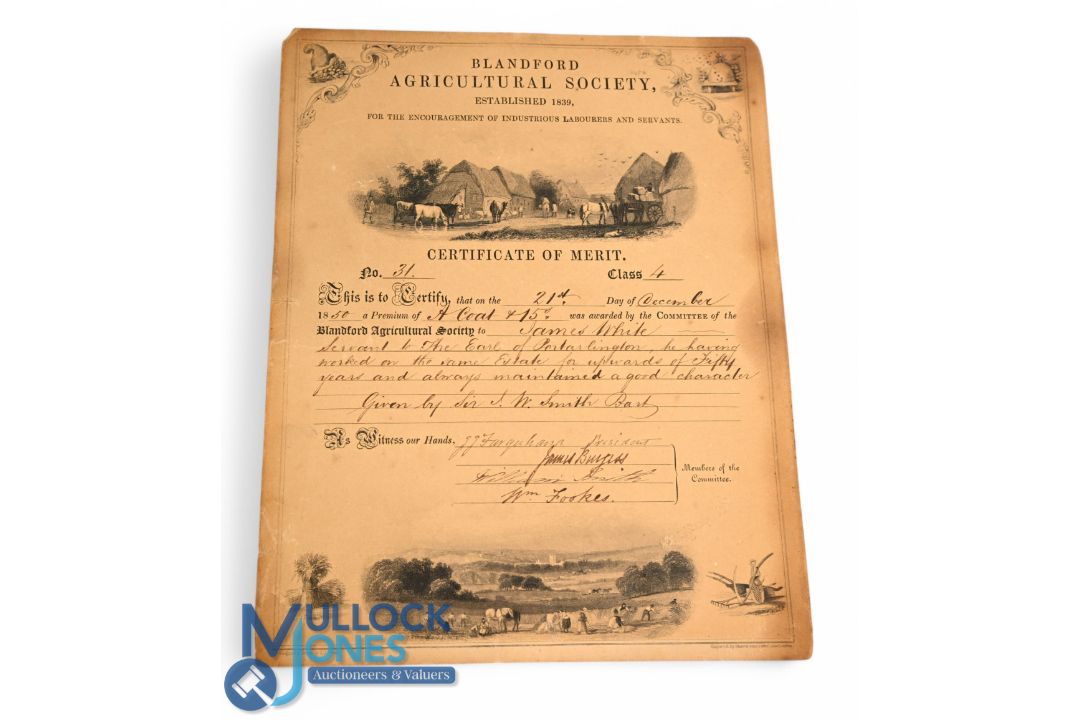 BLANDFORD
AGRICULTURAL SOCIETY,
ESTABLISHED 1839,
FOR THE ENCOURAGEMENT OF INDUSTRIOUS LABOURERS AND SERVANTS.
CERTIFICATE OF MERIT.
No. 31. Class 4
This is to Certify, that on the 21st. Day of December
1850 a Premium of A Coat & 15s. was awarded by the COMMITTEE of the
Blandford Agricultural Society to James White
Servant to The Earl of Portarlington, he having
worked on the same Estate for upwards of Fifty
years and always maintained a good character
Given by Sir J. W. Smith Bart
As Witness our Hands, J J Farquharson President
James Burgess
William Smith
Wm Fookes.
Members of the
Committee.
MULLOCK
JONES
Auctioneers & Valuers